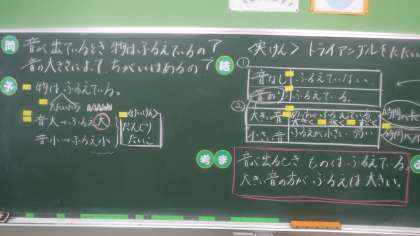 問
音が出ているとき物はふるえているの?
音の大きさによって、ちがいはあるの?
予
物は、ふるえている。
音大→ふるえ大
音小→ふるえ小
だんじり
たいこ
結
<実けん> トライアングルをたたい
①
音なし ふるえていない。
音あり ふるえている。
②
大きい音
小さい音 ふるえが小さい 弱い
時間が長
時間が
考 ま
音が出るとき ものは、ふるえている。
大きい音の方が、ふるえは大きい。